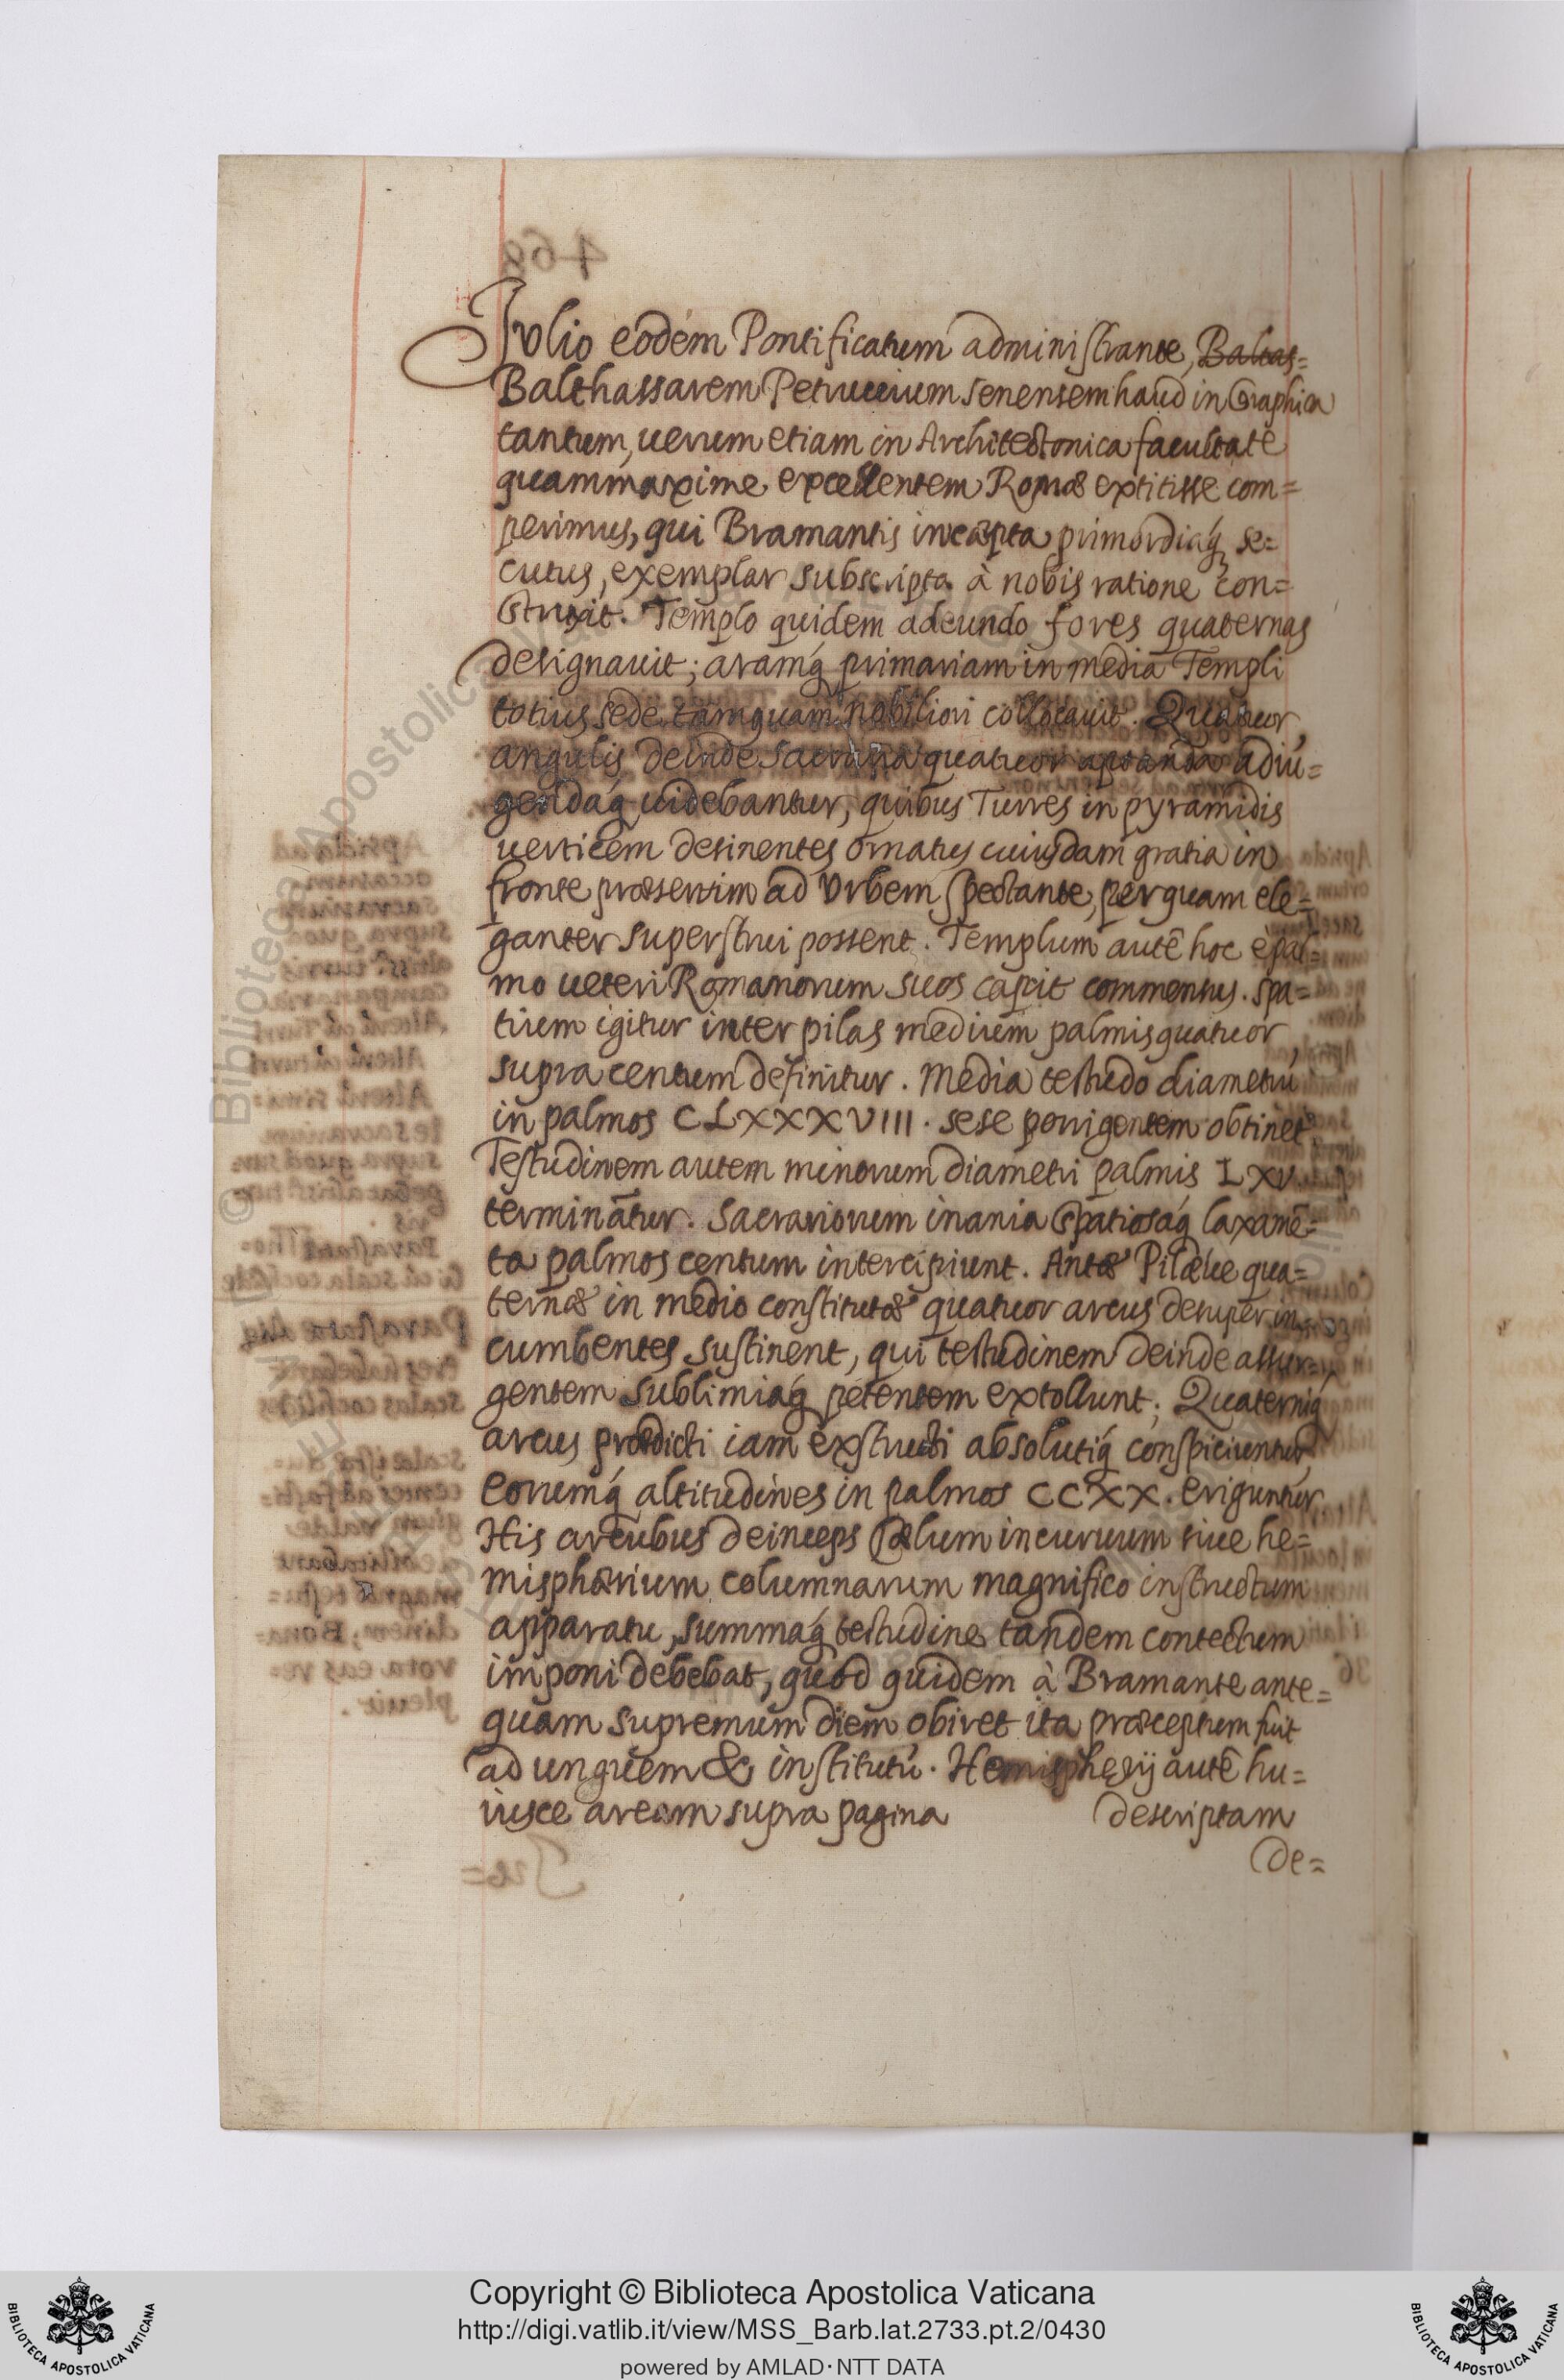 Julio eodem Pontificatum administrante, Baltas=
Balthassarem Petruccium senensem haud in Graphica
tantum, uerum etiam in Architectonica facultate
quammaxime excellentem Romæ extitisse com=
perimus, qui Bramantis incæpta primordiaq́; se=
cutus, exemplar subscripta à nobis ratione con=
struxit. Templo quidem adeundo fores quaternas
designauit; aramq́; primariam in media Templi
totius sede tamquam nobiliori collocauit. Quatuor
angulis deinde sacraria quatuor aptanda adiu=
gendaq́; uidebantur, quibus Turres in pyramidis
uerticem desinentes ornatus cuiusdam gratia in
fronte præsertim ad Vrbem spectante, perquam ele=
ganter superstrui possent. Templum autē hoc è pal=
mo ueteri Romanorum suos cæpit commensus. Spa=
tium igitur inter pilas medium palmis quatuor
supra centum definitur. Media testudo diametrū
in palmos CLXXXVIII. sese porrigentem obtinet
Testudinem autem minorum diametri palmis LXV
terminātur. Sacrariorum inania spatiosaq́; laxamē=
ta palmos centum intercipiunt. Antæ Pilæue qua=
ternæ in medio constitutæ quatuor arcus desuper in=
cumbentes sustinent, qui testudinem deinde assur=
gentem sublimiaq́; petentem extollunt; Quaterniq́;
arcus prædicti iam exstructi absolutiq́; conspiciuntur,
eorumq́; altitudines in palmos CCXX. eriguntur.
His arcubus deinceps cælum incuruum siue he=
misphærium columnarum magnifico instructum
apparatu, summaq́; testudine tandem contectum
imponi debebat, quod quidem à Bramante ante=
quam supremum diem obiret ita præceptum fuit
ad unguem & institutū. Hemispherij autē hu=
iusce aream supra pagina descriptam
de=
Copyright © Biblioteca Apostolica Vaticana
http://digi.vatlib.it/view/MSS_Barb.lat.2733.pt.2/0430
powered by AMLAD·NTT DATA
BIBLIOTECA APOSTOLICA VATICANA
BIBLIOTECA APOSTOLICA VATICANA